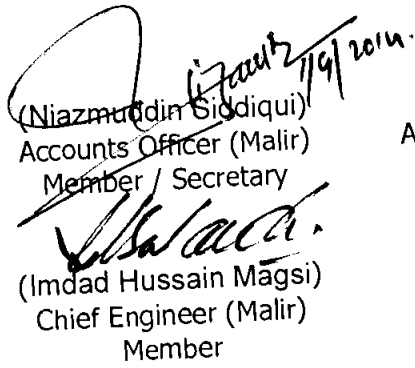 1/9/2014.
(Niazmuddin Siddiqui)
Accounts Officer (Malir)
A
Member / Secretary
(Imdad Hussain Magsi)
Chief Engineer (Malir)
Member